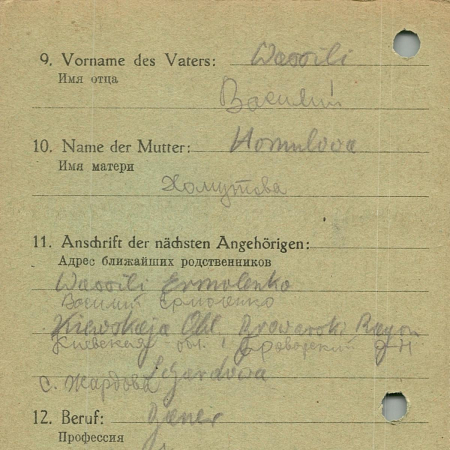 9. Vorname des Vaters: Wassili
Имя отца
Василий
10. Name der Mutter: Homutova
Имя матери
Хомутова
11. Anschrift der nächsten Angehörigen:
Адрес ближайших родственников
Wassili Ermolenko
Василий Ермоленко
Kiewskaja Obl. Browarski Rayon
Киевская обл. Броварский р-н
с. Жардова
12. Beruf:
Профессия